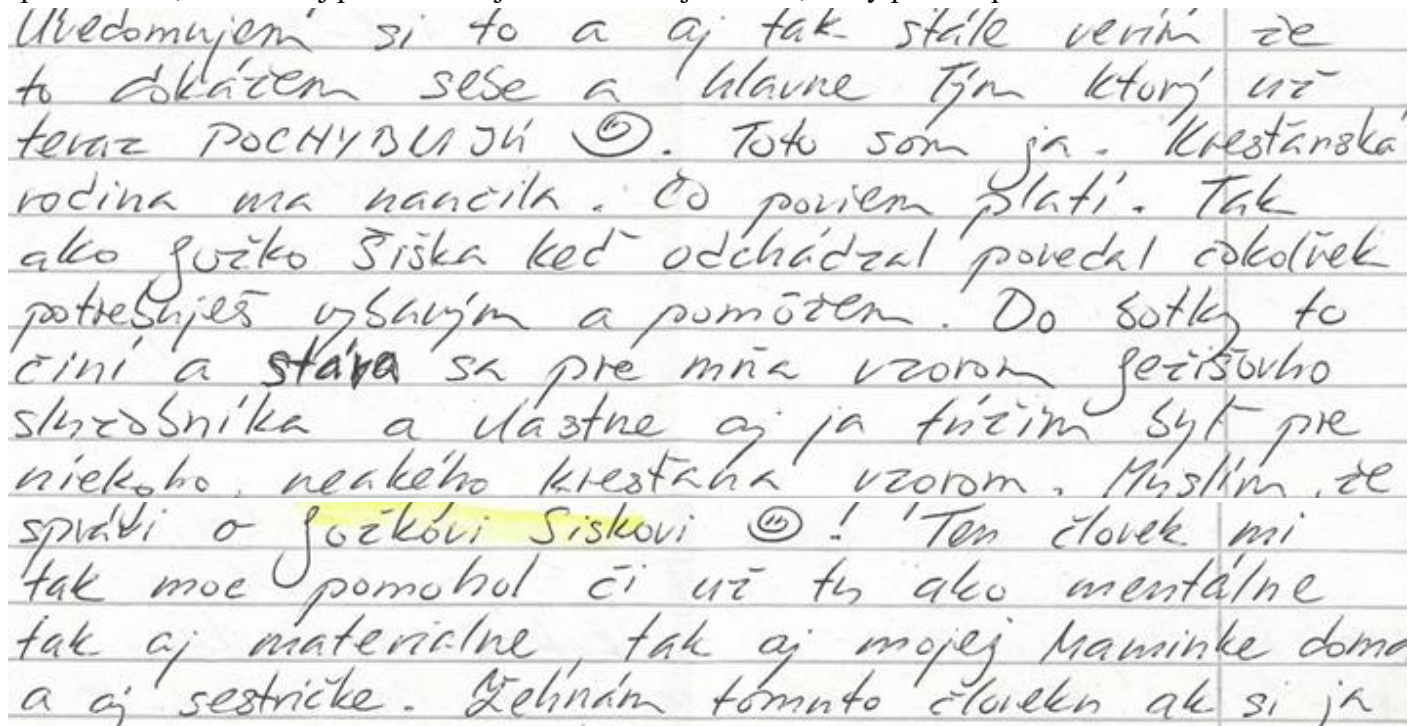 Uvedomujem si to a aj tak stále verím že
to dokážem sebe a hlavne Tým ktorý už
teraz POCHYBUJÚ. Toto som ja. Kresťanská
rodina ma naučila. Čo poviem platí. Tak
ako Jožko Šiška keď odchádzal povedal čokoľvek
potrebuješ vybavým a pomôžem. Do bodky to
činí a stáva sa pre mňa vzorom Ježišovho
služobníka a vlastne aj ja túžim byť pre
niekoho, neakého kresťana vzorom. Myslím, že
správi o Jožkovi Siskovi ! Ten človek mi
tak moc pomohol či už tu ako mentálne
tak aj materiálne, tak aj mojej Maminke doma
a aj sestričke. Žehnám tomuto človeku ak si ja